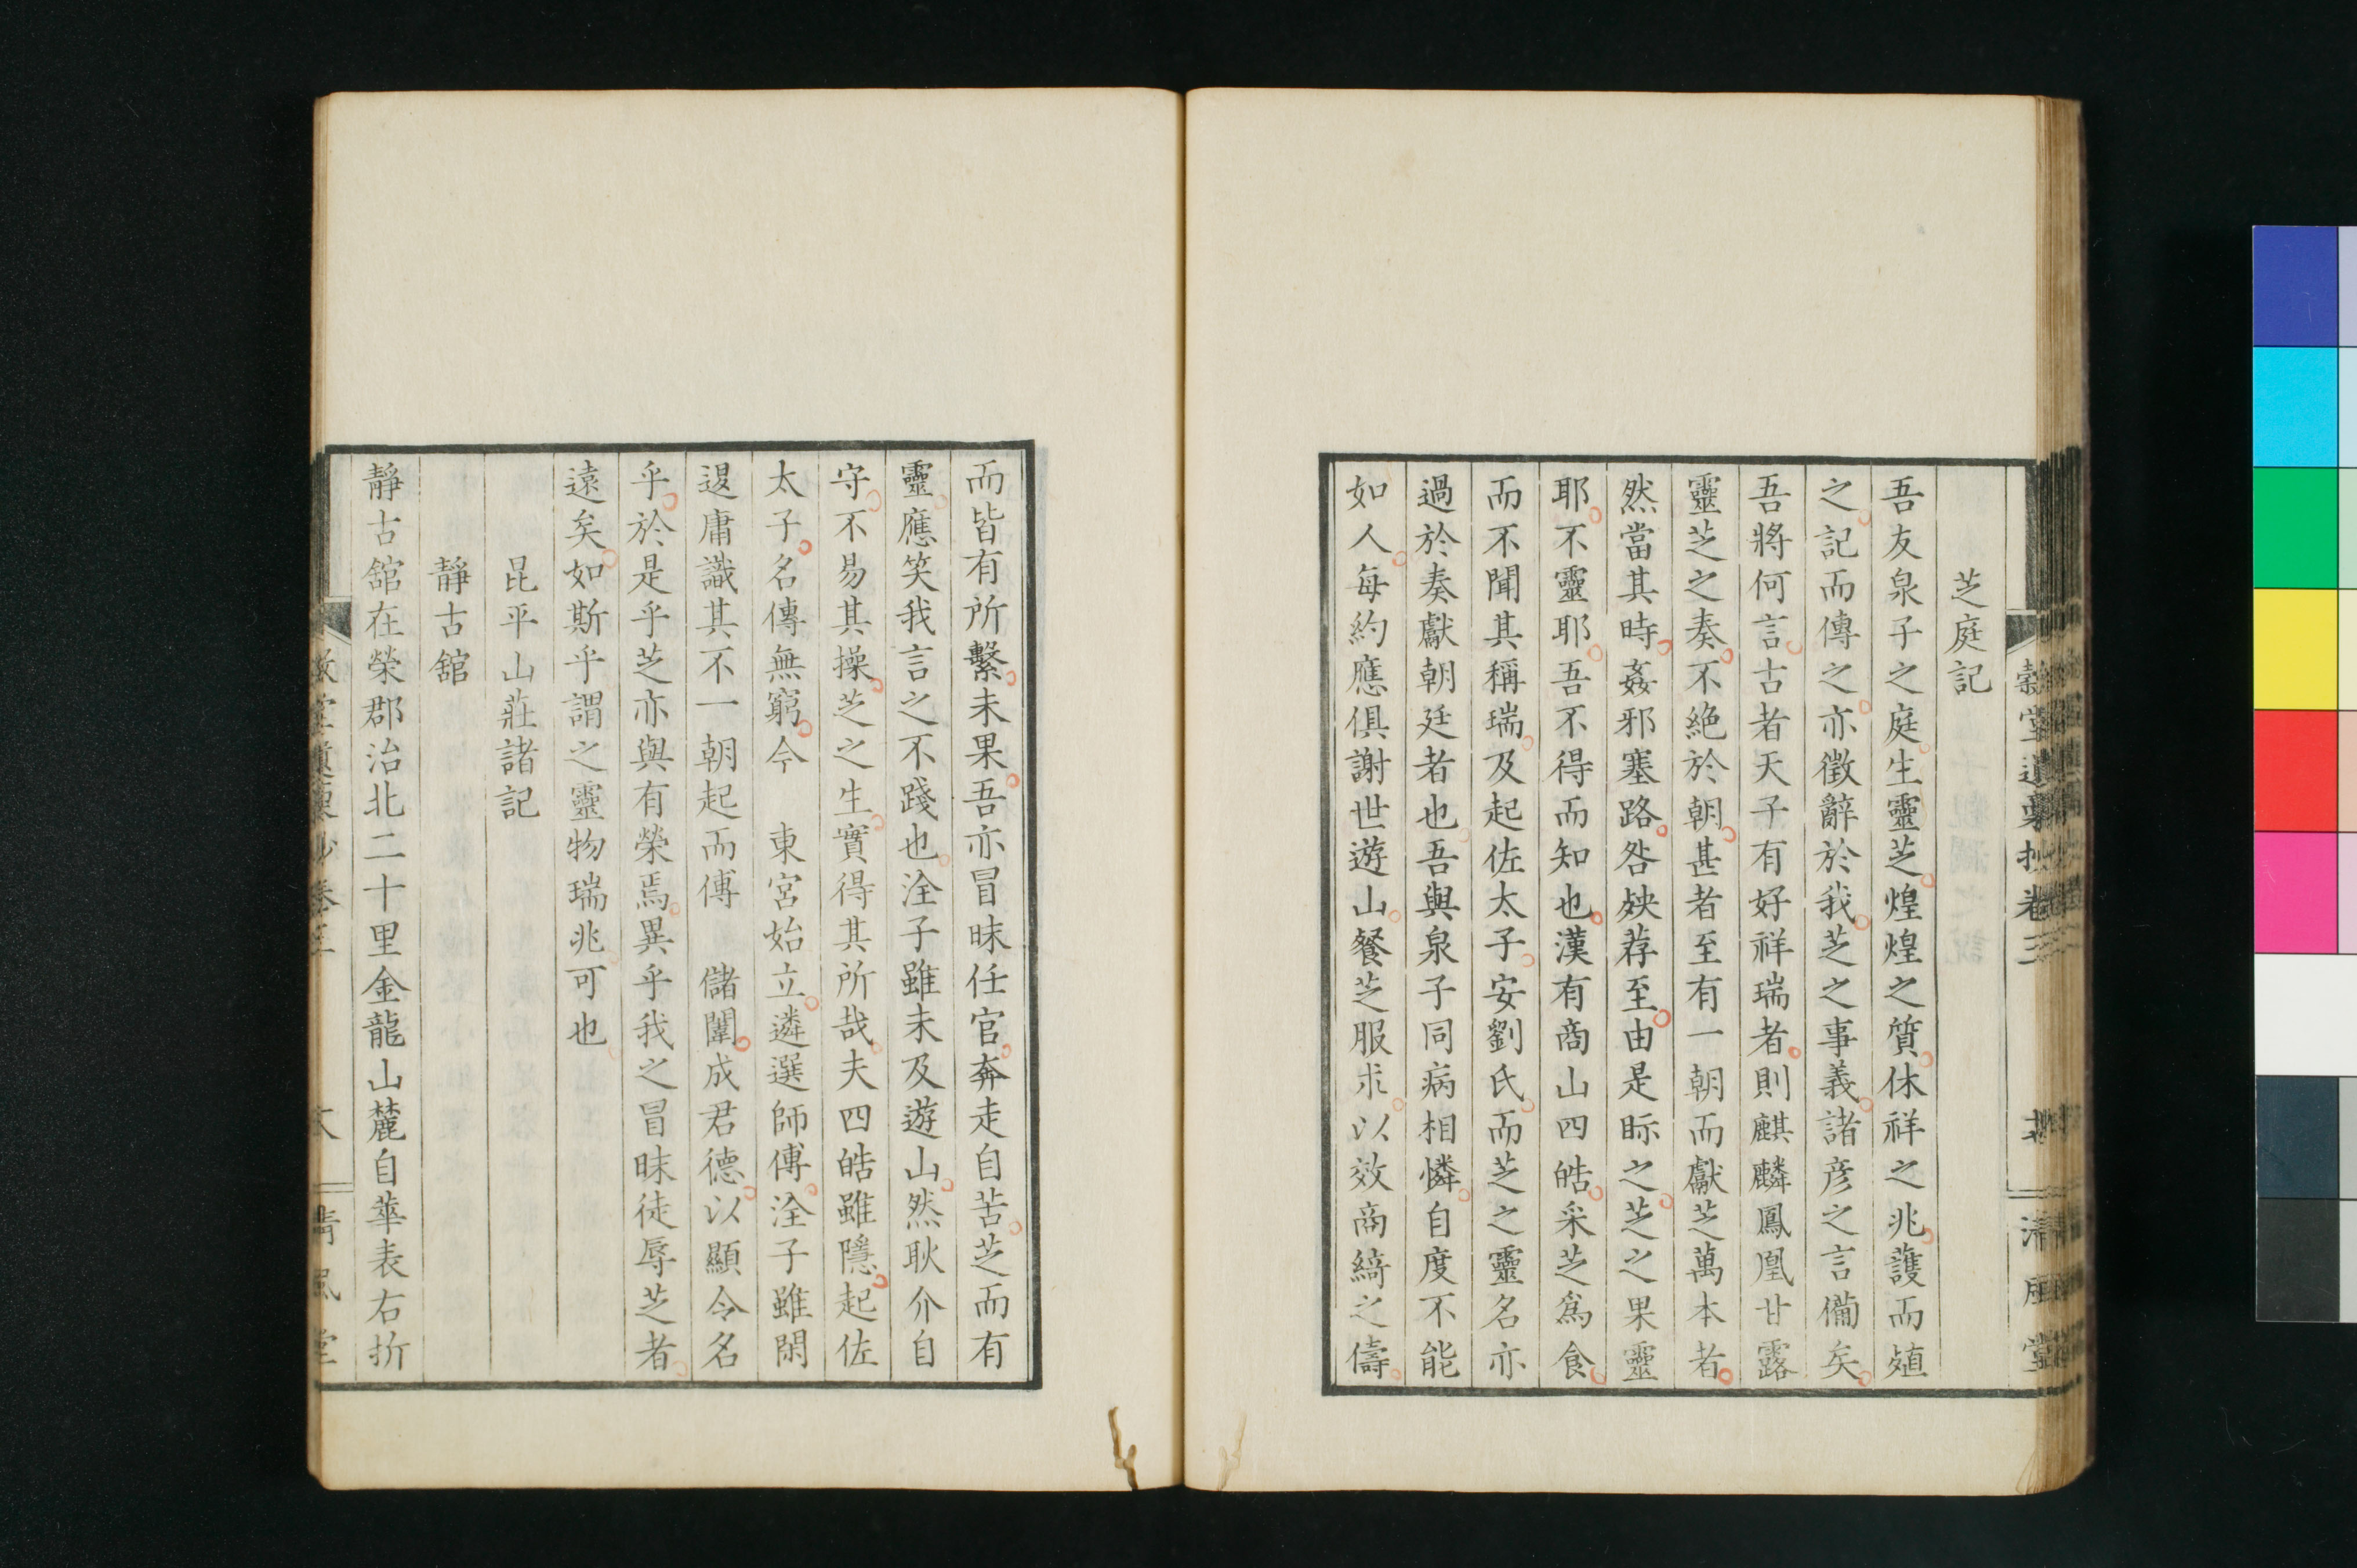 芝庭記
吾友泉子之庭生靈芝煌煌之質休祥之兆護而殖
之記而傳之亦徵辭於我芝之事義諸彦之言備矣
吾將何言古者天子有好祥瑞者則麒麟鳳凰甘露
靈芝之奏不絶於朝甚者至有一朝而獻芝萬本者
然當其時姦邪塞路咎殃荐至由是眎之芝之果靈
耶不靈耶吾不得而知也漢有商山四皓采芝爲食
而不聞其稱瑞及起佐太子安劉氏而芝之靈名亦
過於奏獻朝廷者也吾與泉子同病相憐自度不能
如人每約應俱謝世遊山餐芝服朮以效商綺之儔
而皆有所繫未果吾亦冒昧任官奔走自苦芝而有
靈應笑我言之不踐也洤子雖未及遊山然耿介自
守不易其操芝之生實得其所哉夫四皓雖隱起佐
太子名傳無窮今　東宮始立遴選師傅洤子雖閑
退庸識其不一朝起而傅　儲闈成君德以顯令名
乎於是乎芝亦與有榮焉異乎我之冒昧徒辱芝者
遠矣如斯乎謂之靈物瑞兆可也
昆平山莊諸記
靜古舘
靜古舘在榮郡治北二十里金龍山麓自華表右折